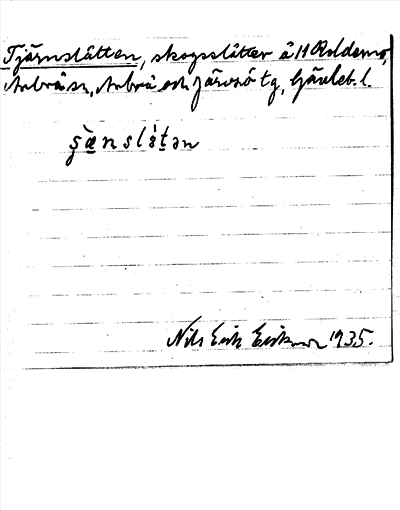 Tjärnslåtten, skogsslåtter å 11 Roldemo,
Arbrå sn, Arbrå och Järvsö tg, Gävleb. l.
ṣæ̀nslåtən
Nils Erik Eriksson 1935.